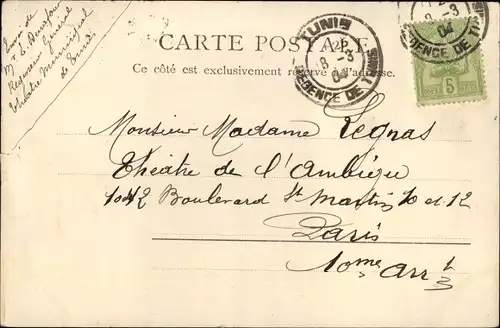 Envoi de
Mr L.
Régisseur Général
théâtre Municipal
de Tunis
CARTE POSTALE
Ce côté est exclusivement réservé à l'adresse.
TUNIS
8 -3
04
REGENCE DE TUNIS
8 -3
04
5
Monsieur Madame Legnas
Théâtre de l'Ambigu
Boulevard St Martin 10 et 12
Paris
10me Arrt